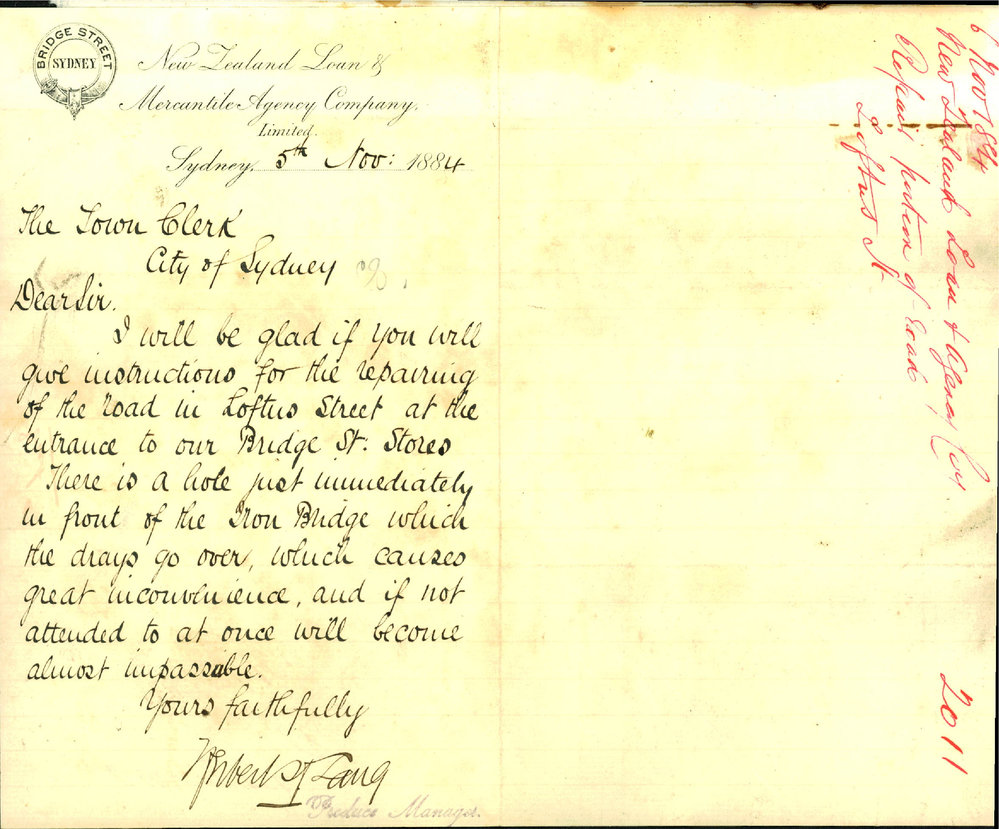 BRIDGE STREET
SYDNEY
New Zealand Loan &
Mercantile Agency Company,
Limited.
Sydney, 5th Nov: 1884
The Town Clerk
City of Sydney
Dear Sir.
I will be glad if you will
give instructions for the repairing
of the road in Loftus Street at the
entrance to our Bridge St: Stores
There is a hole just immediately
in front of the Iron Bridge which
the drays go over, which causes
great inconvenience, and if not
attended to at once will become
almost impassable.
Yours faithfully
Lang
Produce Manager.
6 Nov 1884
New Zealand Loan & Agency Coy.
Repair portion of road
Loftus St
2011